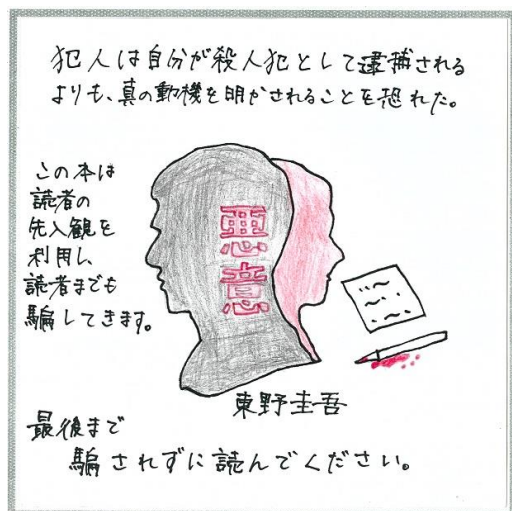 犯人は自分が殺人犯として逮捕される
よりも、真の動機を明かされることを恐れた。
この本は
読者の
先入観を
利用し、
読者までも
騙してきます。
悪意
東野圭吾
最後まで
騙されずに読んでください。